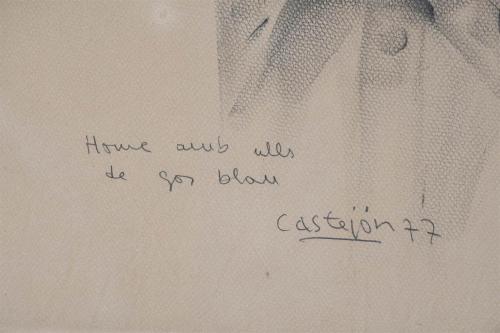 Home amb ulls
de gos blau
Castejón 77